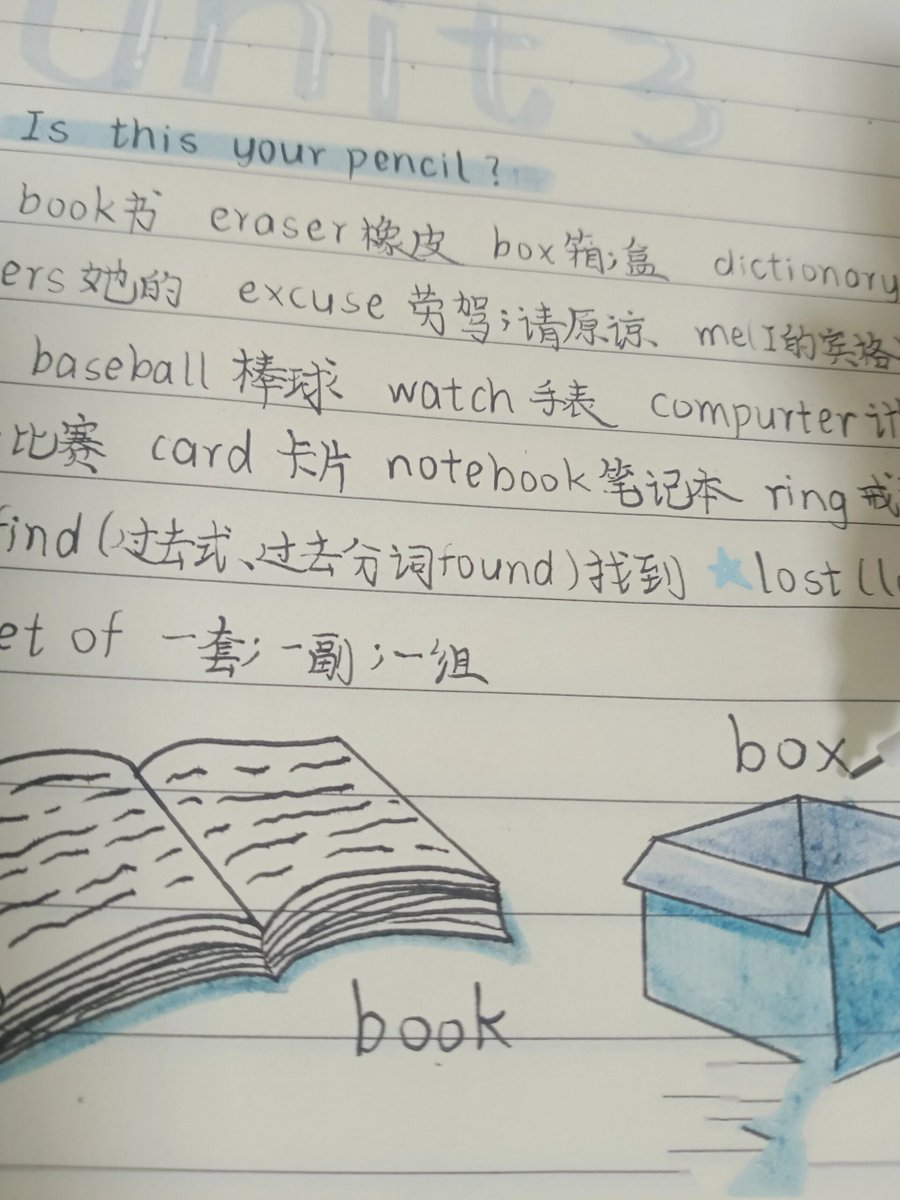 unit 3
Is this your pencil?
book书 eraser橡皮 box箱;盒 dictionory
ers她的 excuse 劳驾;请原谅、 me(I的宾格
baseball 棒球 watch 手表 compurter计
比赛 card 卡片 notebook笔记本 ring戒
find(过去式、过去分词found)找到 lost(l
et of 一套;一副;一组
box
book